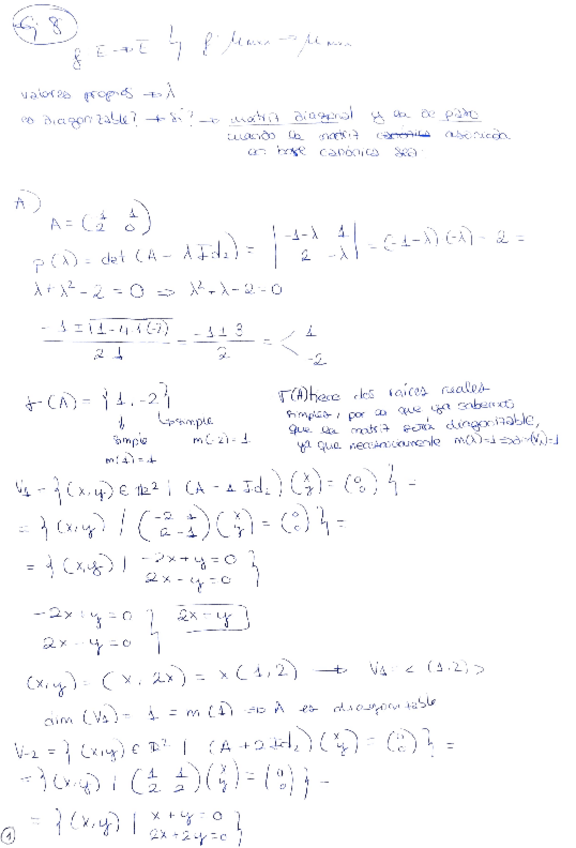 Ej 8
f: E → E    f: Mnxn → Mnxn
valores propios → λ
es diagonizable? → Sí? → matriz diagonal y de paso
cuando la matriz asociada
en base canónica sea.
A)
A = (1 1
2 0)
p(λ) = det (A - λ Id₂) = | -1-λ 1
2 -λ | = (-1-λ)(-λ) - 2 =
λ + λ² - 2 = 0 ⇒ λ² + λ - 2 = 0
-1 ± √1-4·1(-2) / 2·1 = -1 ± 3 / 2 = < 1
-2
σ(A) = {1, -2}
simple m(-2) = 1
simple
m(1) = 1
σ(A) tiene dos raíces reales
simples, por lo que ya sabemos
que la matriz será diagonizable,
ya que necesariamente m(λ)=1
V₁ = {(x,y) ∈ ℝ² | (A - 1 Id₂) (x y) = (0 0)} =
= {(x,y) | (-2 1 2 -1) (x y) = (0 0)} =
= {(x,y) | -2x + y = 0
2x - y = 0}
-2x + y = 0
2x - y = 0 } 2x = y
(x,y) = (x, 2x) = x(1,2) → V₁ = < (1,2) >
dim (V₁) = 1 = m(1) ⇒ A es diagonizable
V-2 = {(x,y) ∈ ℝ² | (A + 2 Id₂) (x y) = (0 0)} =
= {(x,y) | (1 1 2 2) (x y) = (0 0)} =
= {(x,y) | x + y = 0
2x + 2y = 0}
1